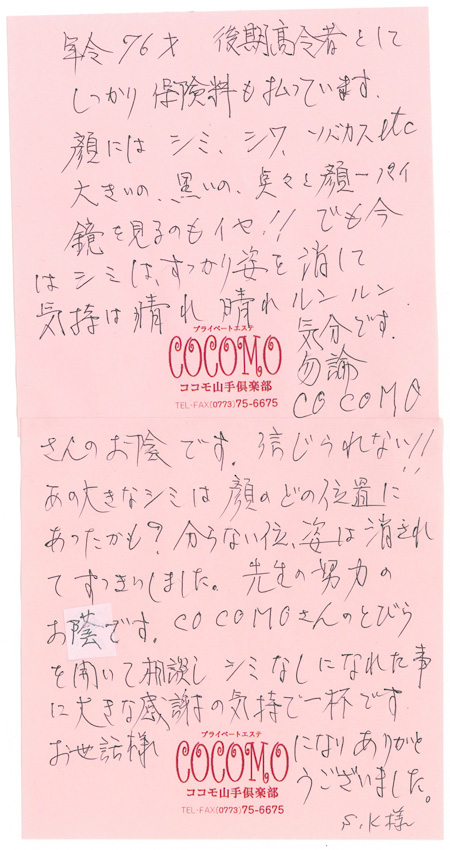 年令76才 後期高令者として
しっかり保険料も払っています.
顔にはシミ、シワ、ソバカスetc
大きいの、黒いの、点々と顔一パイ
鏡を見るのもイヤ!! でも今
はシミは、すっかり姿を消して
気持は晴れ晴れルンルン.
気分です.
勿論
COCOMO
プライベートエステ
COCOMO
ココモ山手倶楽部
TEL・FAX(0773)75-6675
さんのお陰です. 信じられない!!
あの大きなシミは顔のどの位置に
あったかも? 分らない位、姿は消され
てすっきりしました。先生の努力の
お蔭です。COCOMOさんのとびら
を開いて相談しシミなしになれた事
に大きな感謝の気持で一杯です.
お世話様
になりありがと
うございました。
プライベートエステ
COCOMO
ココモ山手倶楽部
TEL・FAX(0773)75-6675
S.K様